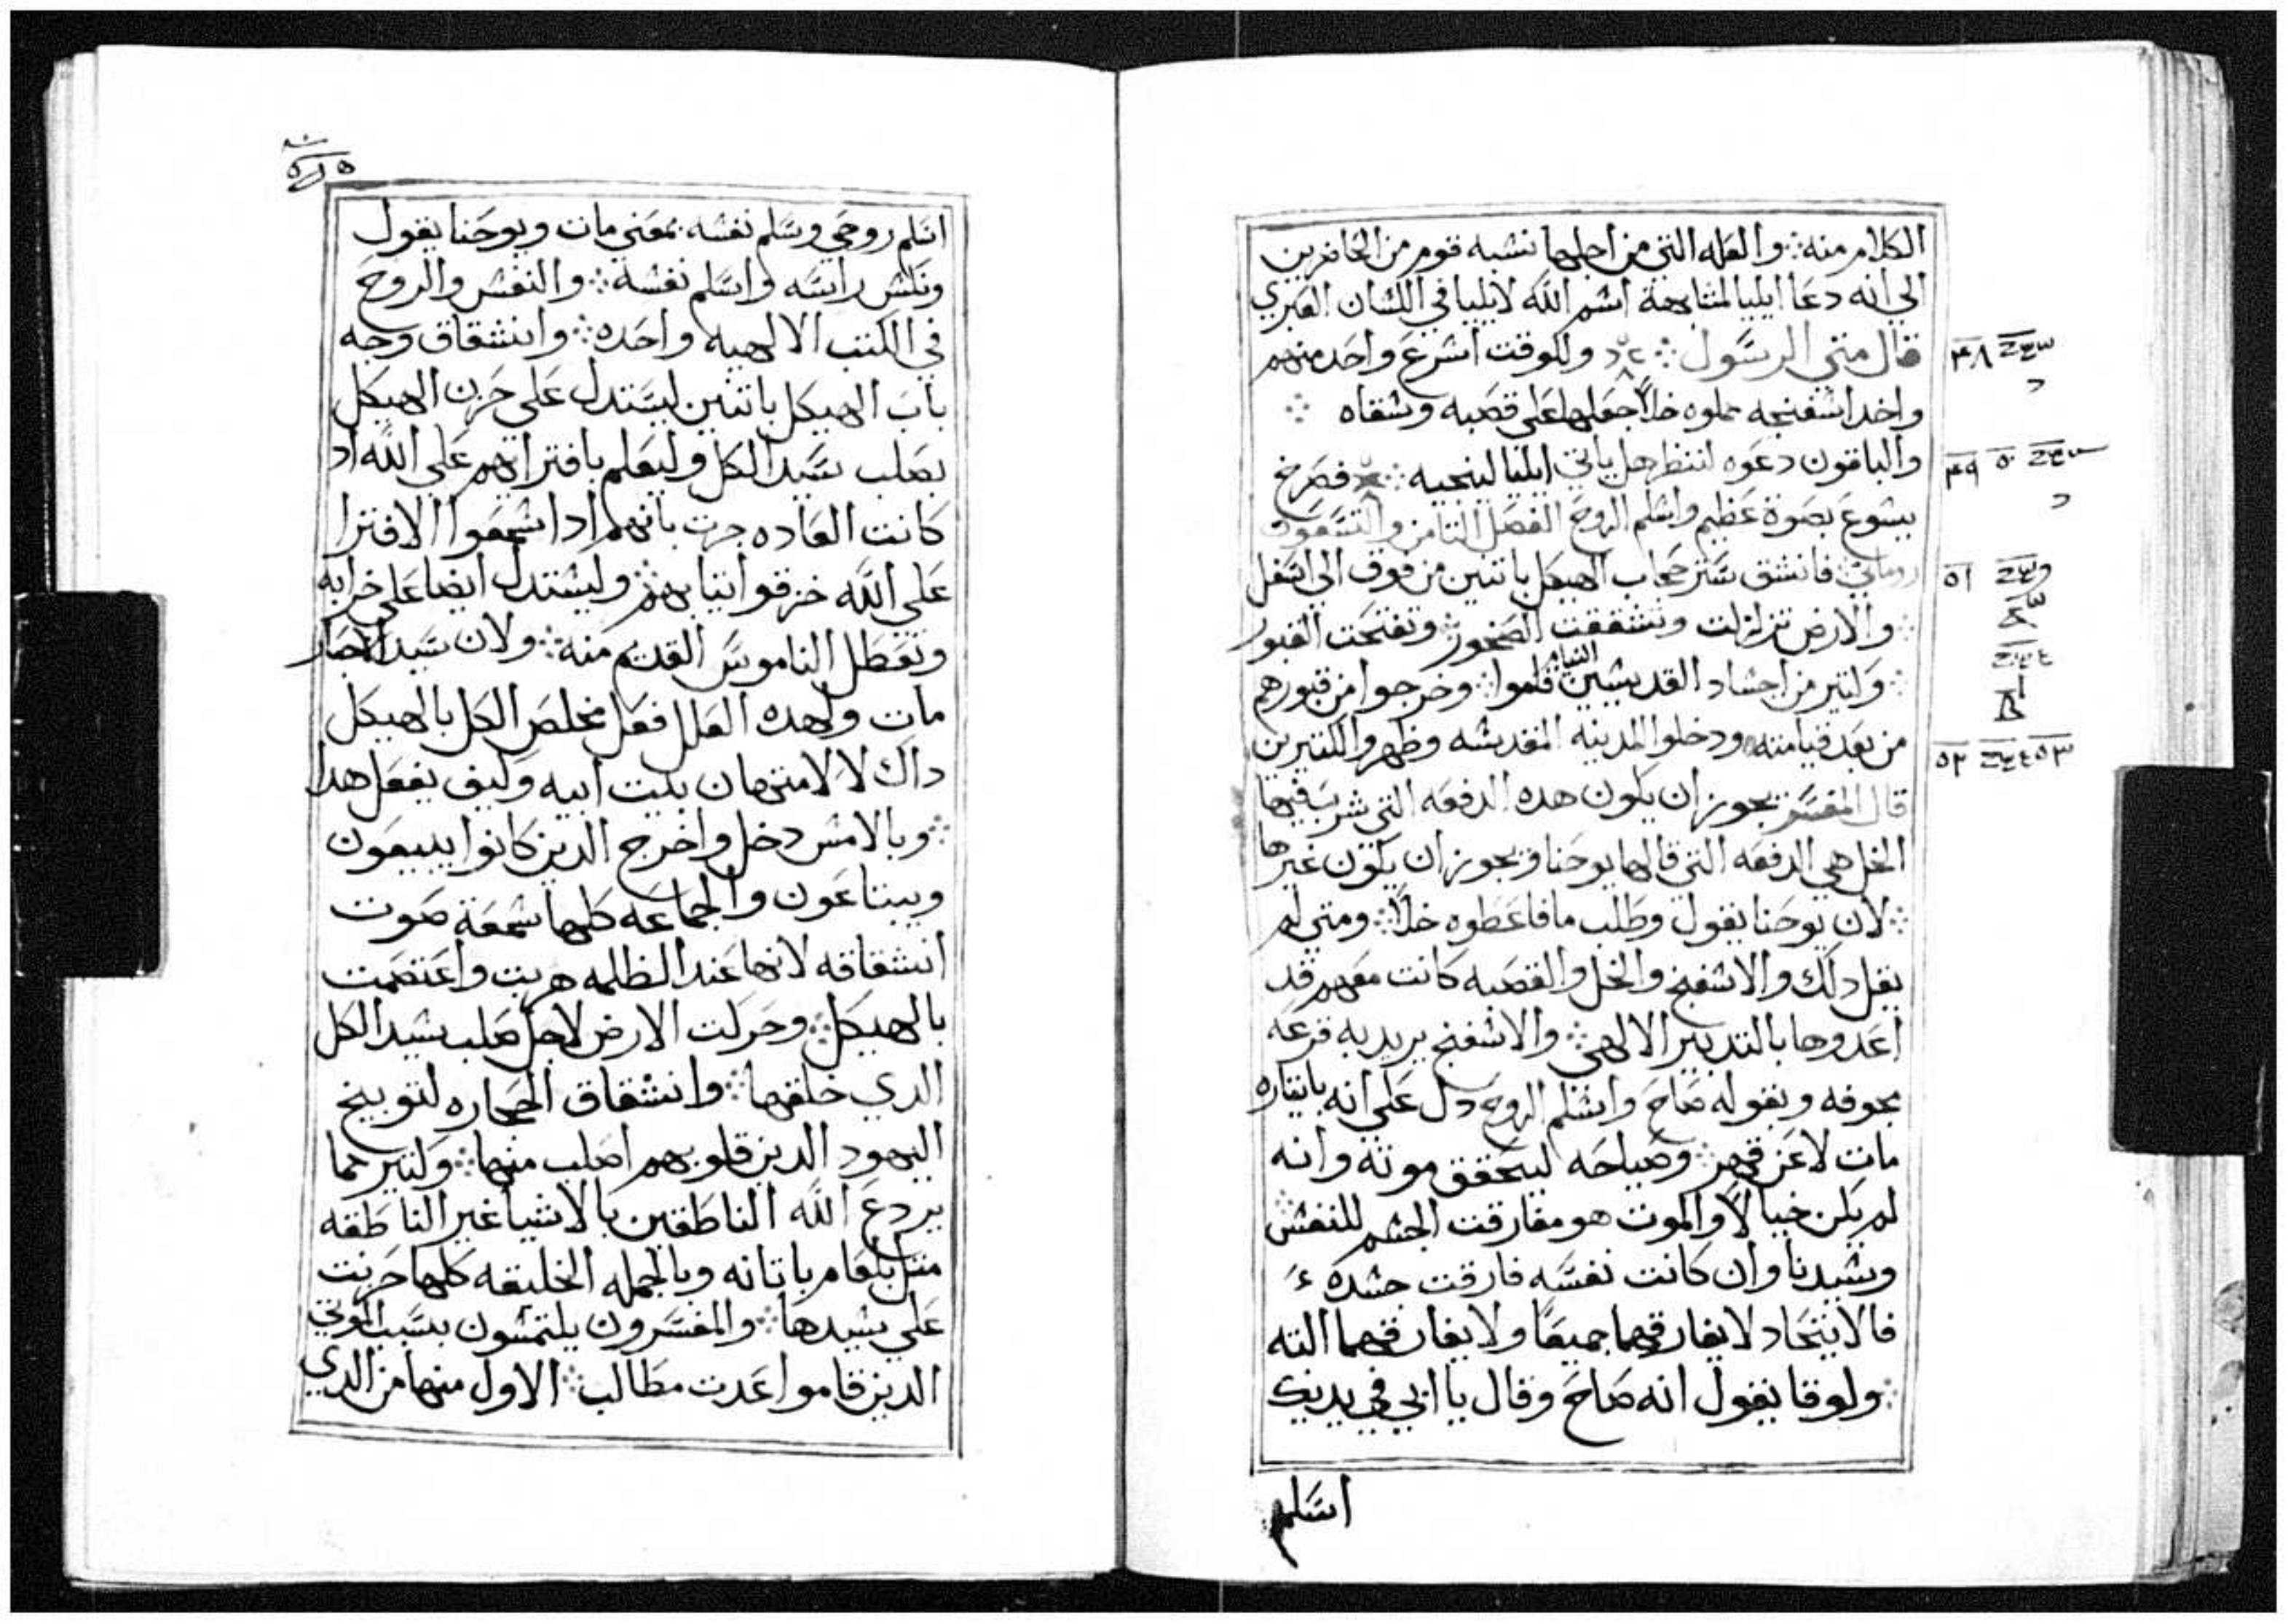 الكلام منه ⁘ والعله التي من اجلها نشبه قوم من الحاضرين
الي انه دعا ايليا لمشابهة اشم الله لايليا في اللشان العبري
قال متي الرسول ⁘ وللوقت اشرع واحد منهم
واخد اشفنجه مملوه خلاً جعلها علي قصبه وشقاه ⁘
والباقون دعوه لننظر هل ياتي ايليا لينجيه ⁘ فصرخ
يشوع بصوة عظيم واشلم الروح الفصل التامن والتشعون
روماني ⁘ فانشق شتر حجاب الهيكل باتنين من فوق الي اشفل
⁘ والارض تزلزلت وتشققت الصخور ⁘ وتفتحت القبور
⁘ وكتير من اجشاد القديشين النيام قاموا ⁘ وخرجوا من قبورهم
من بعد قيامته ودخلوا المدينه المقدشه وظهروا لكتيرين
قال المفسر يجوز ان يكون هده الدفعه التي شرب فيها
الخل هي الدفعه التي قالها يوحنا ويجوز ان يكون غيرها
⁘ لان يوحنا يقول وطلب ما فاعطوه خلاً ⁘ ومتي لم
يقل دلك والاشفنج والخل والقصبه كانت معهم قد
اعدوها بالتدبير الالهي ⁘ والاشفنج يريد به قرعه
بجوفه وبقوله صاح واشلم الروح دل علي انه بايتاره
مات لا عن قهر ⁘ وصياحه ليتحقق موته وانه
لم يكن خيالاً والموت هو مفارقت الجشم للنفش ⁘
وشيدنا وان كانت نفسه فارقت جشده
فالايتحاد لا يفارقهما جميعا ولا يفارقهما البته
⁘ ولوقا يقول انه صاح وقال يا ابي في يديك
اسلم
٤٨
٤٩
٥١
٥٢
اسلم روحي وسلم نفشه بمعني مات ويوحنا يقول
ونكش راسه واسلم نفشه ⁘ والنفش والروح
في الكتب الالهيه واحده ⁘ وانشقاق وجه
باب الهيكل باتنين ليستدل علي حزن الهيكل
بصلب سيد الكل وليعلم بافترايهم علي الله اد
كانت العاده جرت بانهم ادا شمعوا الافترا
علي الله خرقوا تيابهم ⁘ وليشتدل ايضا علي خرابه
وتعطل الناموس القديم منه ⁘ ولان سيد الاحبار
مات ولهده العلل فعل مخلص الكل بالهيكل
داك لا لامتهان بيت ابيه وكيف يفعل هدا
⁘ وبالامش دخل واخرج الدين كانوا يبيعون
ويبتاعون والجماعه كلها شمعة صوت
انشقاقه لانها عند الظلمه هربت واعتصمت
بالهيكل ⁘ وحركت الارض لاجل صلب شيد الكل
الدي خلقها ⁘ وانشقاق الحجاره لتوبيخ
اليهود الدين قلوبهم اصلب منها ⁘ وكتير مما
يردع الله الناطقين بالاشيا غير الناطقه
متل بلعام باتانه وبالجمله الخليقه كلها حزنت
علي شيدها ⁘ والمفسرون يلتمشون بسبب الموتي
الدين قاموا عدت مطالب ⁘ الاول منها من الدي